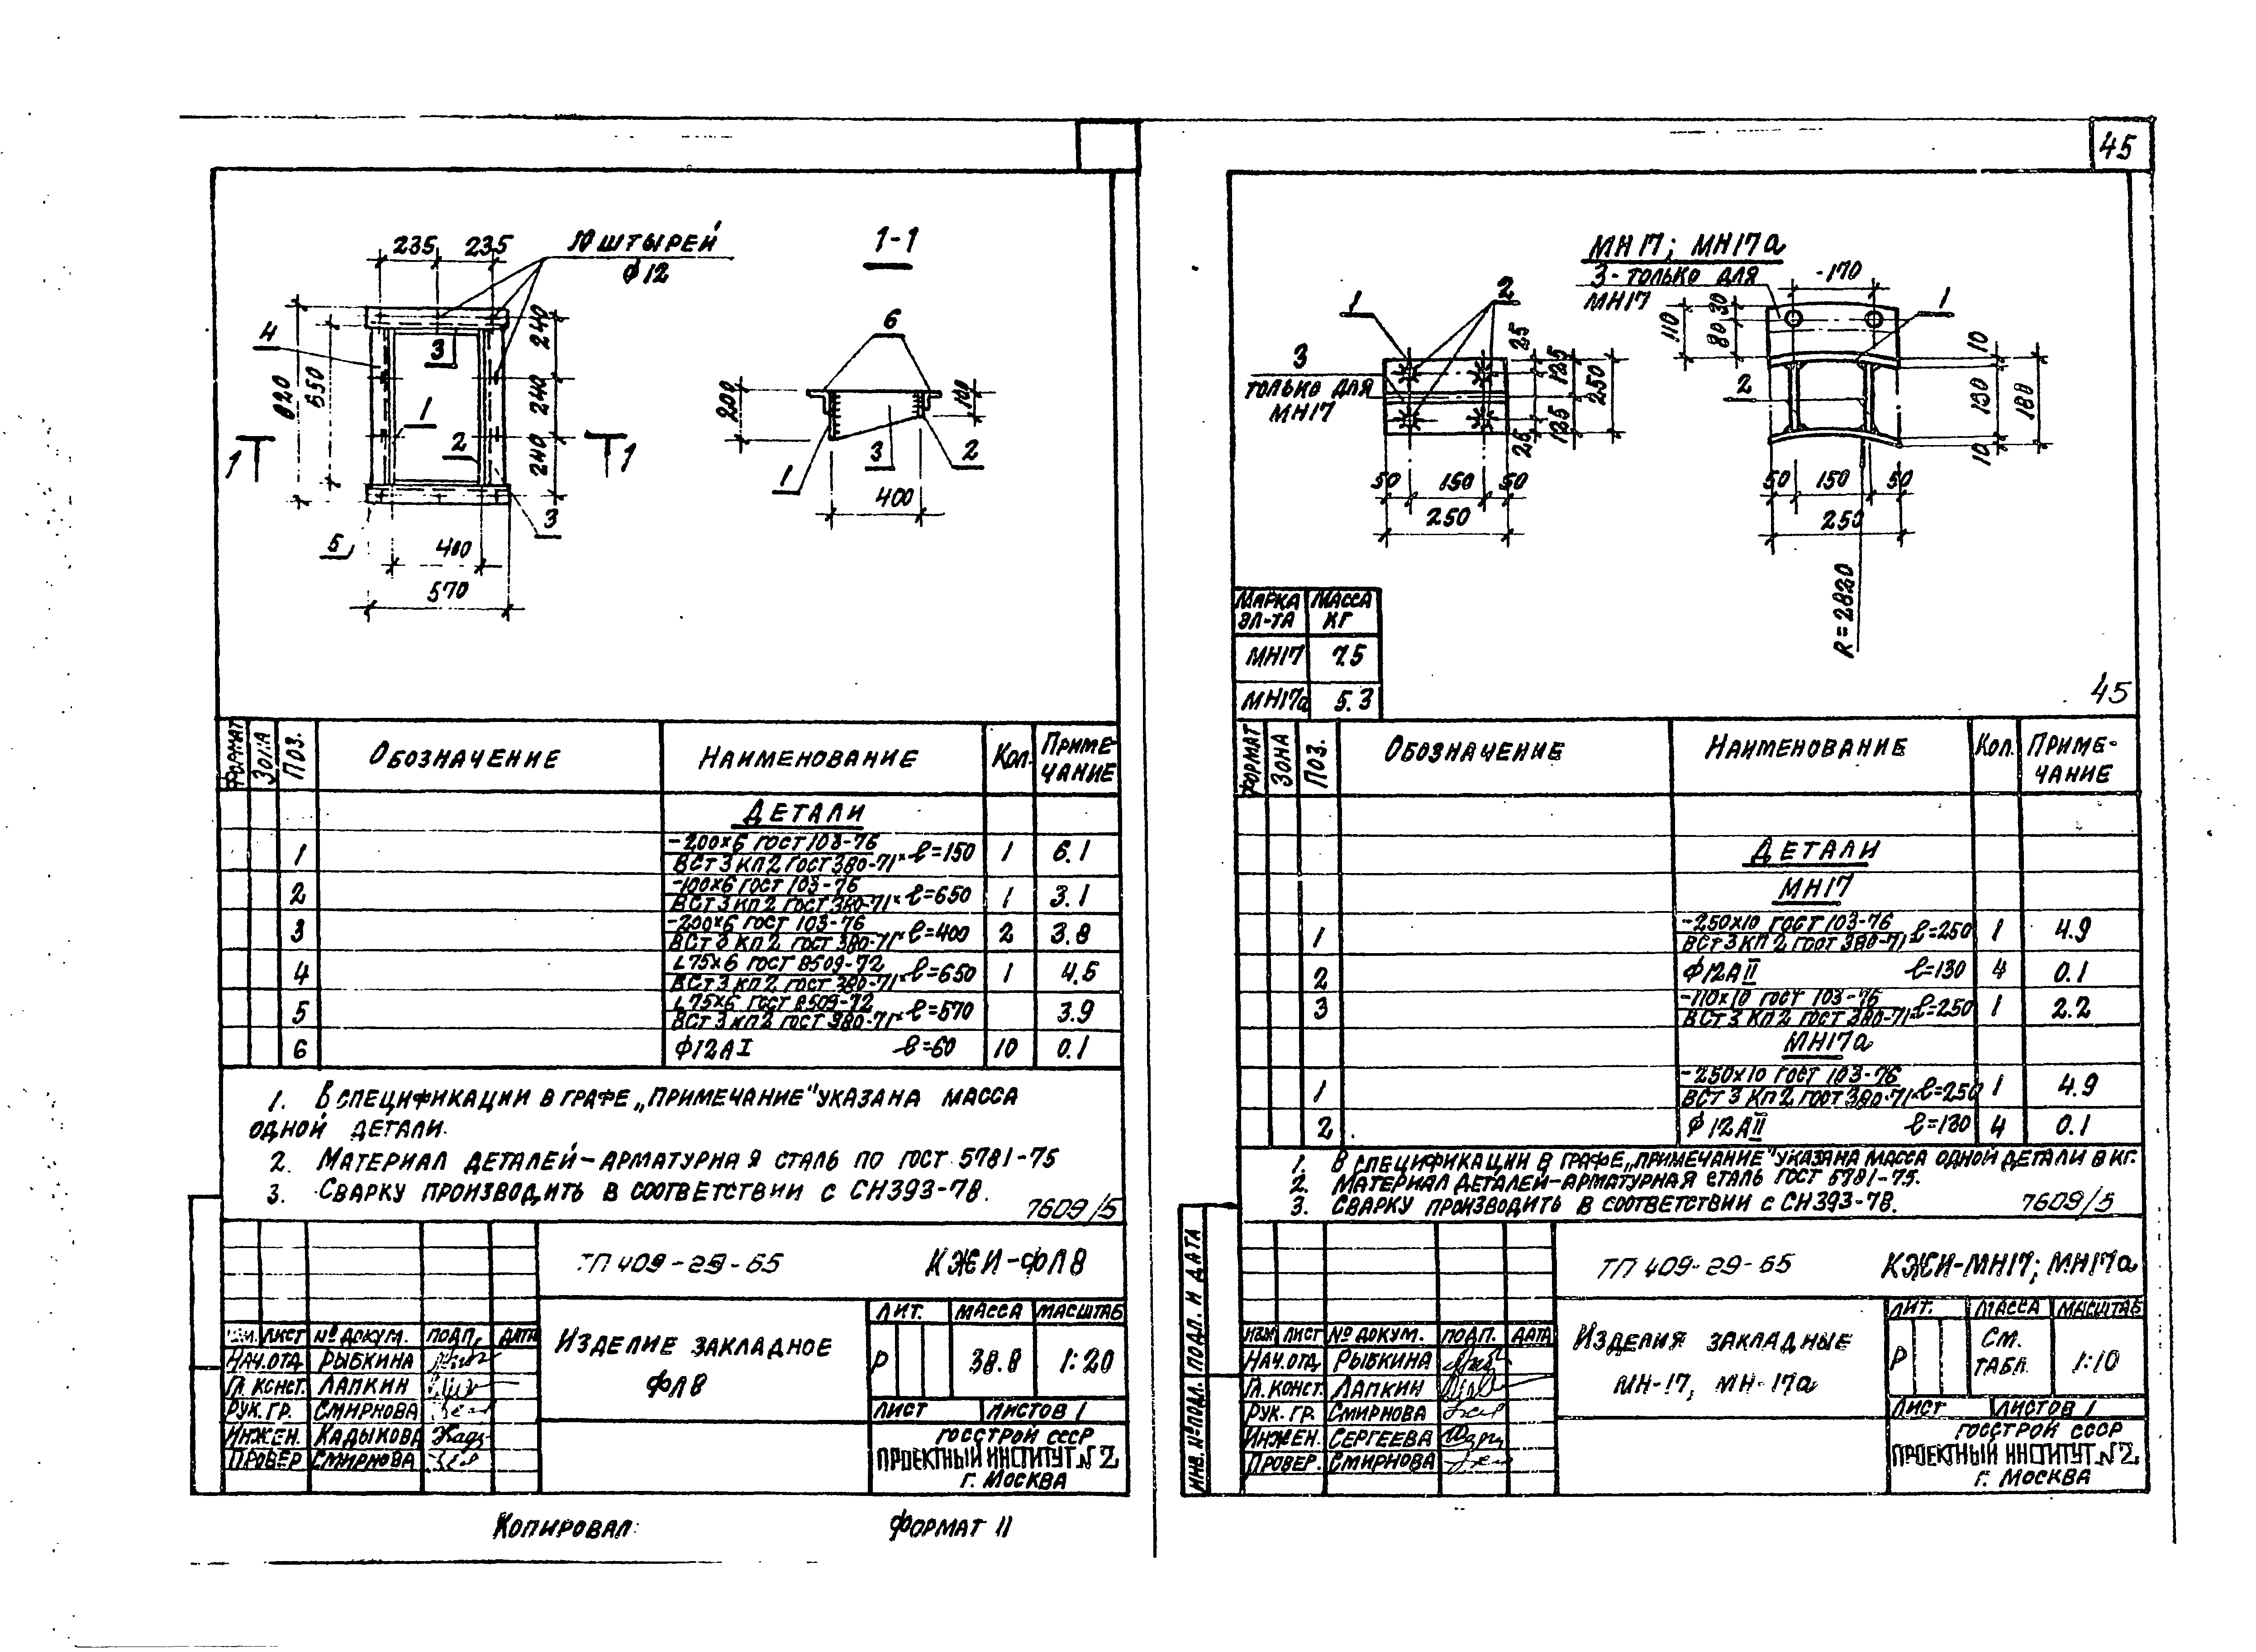 45
235 235 10 ШТЫРЕЙ
Ф12
1-1
4
820
650
3
240
240
240
1
2
1 1
5
3
400
570
6
200
100
1
3
2
400
МН17; МН17а
3-ТОЛЬКО ДЛЯ
МН17
170
1
110
80 30
10
130
180
10
2
50 150 50
250
R=2820
1
2
3
ТОЛЬКО ДЛЯ
МН17
25
125
250
125
25
50 150 50
250
МАРКА ЭЛ-ТА МАССА КГ
МН17 7.5
МН17а 5.3
45
ФОРМАТ ЗОНА ПОЗ. ОБОЗНАЧЕНИЕ НАИМЕНОВАНИЕ КОЛ. ПРИМЕ-
ЧАНИЕ
ДЕТАЛИ
1 -200х6 ГОСТ 103-76
ВСТ3КП2 ГОСТ 380-71* ℓ=150 1 6.1
2 -100х6 ГОСТ 103-76
ВСТ3КП2 ГОСТ 380-71* ℓ=650 1 3.1
3 -200х6 ГОСТ 103-76
ВСТ3КП2 ГОСТ 380-71* ℓ=400 2 3.8
4 L75х6 ГОСТ 8509-72
ВСТ3КП2 ГОСТ 380-71* ℓ=650 1 4.5
5 L75х6 ГОСТ 8509-72
ВСТ3КП2 ГОСТ 380-71* ℓ=570 3.9
6 Ф12АI ℓ=60 10 0.1
1. В СПЕЦИФИКАЦИИ В ГРАФЕ „ПРИМЕЧАНИЕ" УКАЗАНА МАССА
ОДНОЙ ДЕТАЛИ.
2. МАТЕРИАЛ ДЕТАЛЕЙ-АРМАТУРНАЯ СТАЛЬ ПО ГОСТ 5781-75
3. СВАРКУ ПРОИЗВОДИТЬ В СООТВЕТСТВИИ С СН393-78.
7609/5
ТП 409-29-65 КЖИ-ФЛ8
ЛИСТ № ДОКУМ. ПОДП. ДАТА
НАЧ.ОТД РЫБКИНА
ГЛ. КОНСТ. ЛАПКИН
РУК. ГР. СМИРНОВА
ИНЖЕН. КАДЫКОВА
ПРОВЕР СМИРНОВА
ИЗДЕЛИЕ ЗАКЛАДНОЕ
ФЛ8
ЛИТ. МАССА МАСШТАБ
Р 38.8 1:20
ЛИСТ ЛИСТОВ 1
ГОССТРОЙ СССР
ПРОЕКТНЫЙ ИНСТИТУТ N2
Г. МОСКВА
КОПИРОВАЛ: ФОРМАТ 11
ФОРМАТ ЗОНА ПОЗ. ОБОЗНАЧЕНИЕ НАИМЕНОВАНИЕ КОЛ. ПРИМЕ-
ЧАНИЕ
ДЕТАЛИ
МН17
1 -250х10 ГОСТ 103-76
ВСТ3КП2 ГОСТ 380-71* ℓ=250 1 4.9
2 Ф12АII ℓ=130 4 0.1
3 -110х10 ГОСТ 103-76
ВСТ3КП2 ГОСТ 380-71* ℓ=250 1 2.2
МН17а
1 -250х10 ГОСТ 103-76
ВСТ3КП2 ГОСТ 380-71* ℓ=250 1 4.9
2 Ф12АII ℓ=130 4 0.1
1. В СПЕЦИФИКАЦИИ В ГРАФЕ „ПРИМЕЧАНИЕ" УКАЗАНА МАССА ОДНОЙ ДЕТАЛИ В КГ.
2. МАТЕРИАЛ ДЕТАЛЕЙ-АРМАТУРНАЯ СТАЛЬ ГОСТ 5781-75.
3. СВАРКУ ПРОИЗВОДИТЬ В СООТВЕТСТВИИ С СН393-78.
7609/5
ИНВ. № ПОДЛ. ПОДП. И ДАТА
ТП 409-29-65 КЖИ-МН17; МН17а
ИЗМ ЛИСТ № ДОКУМ. ПОДП. ДАТА
НАЧ.ОТД РЫБКИНА
ГЛ. КОНСТ. ЛАПКИН
РУК. ГР. СМИРНОВА
ИНЖЕН. СЕРГЕЕВА
ПРОВЕР. СМИРНОВА
ИЗДЕЛИЯ ЗАКЛАДНЫЕ
МН-17, МН-17а
ЛИТ. МАССА МАСШТАБ
Р СМ. ТАБЛ. 1:10
ЛИСТ ЛИСТОВ 1
ГОССТРОЙ СССР
ПРОЕКТНЫЙ ИНСТИТУТ N2
Г. МОСКВА